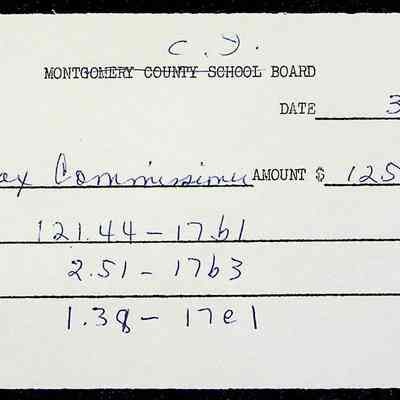 C. Y.
MONTGOMERY COUNTY SCHOOL BOARD
DATE 3
ax Commissioner AMOUNT $ 125
121.44 - 17b1
2.51 - 17b3
1.38 - 17e1